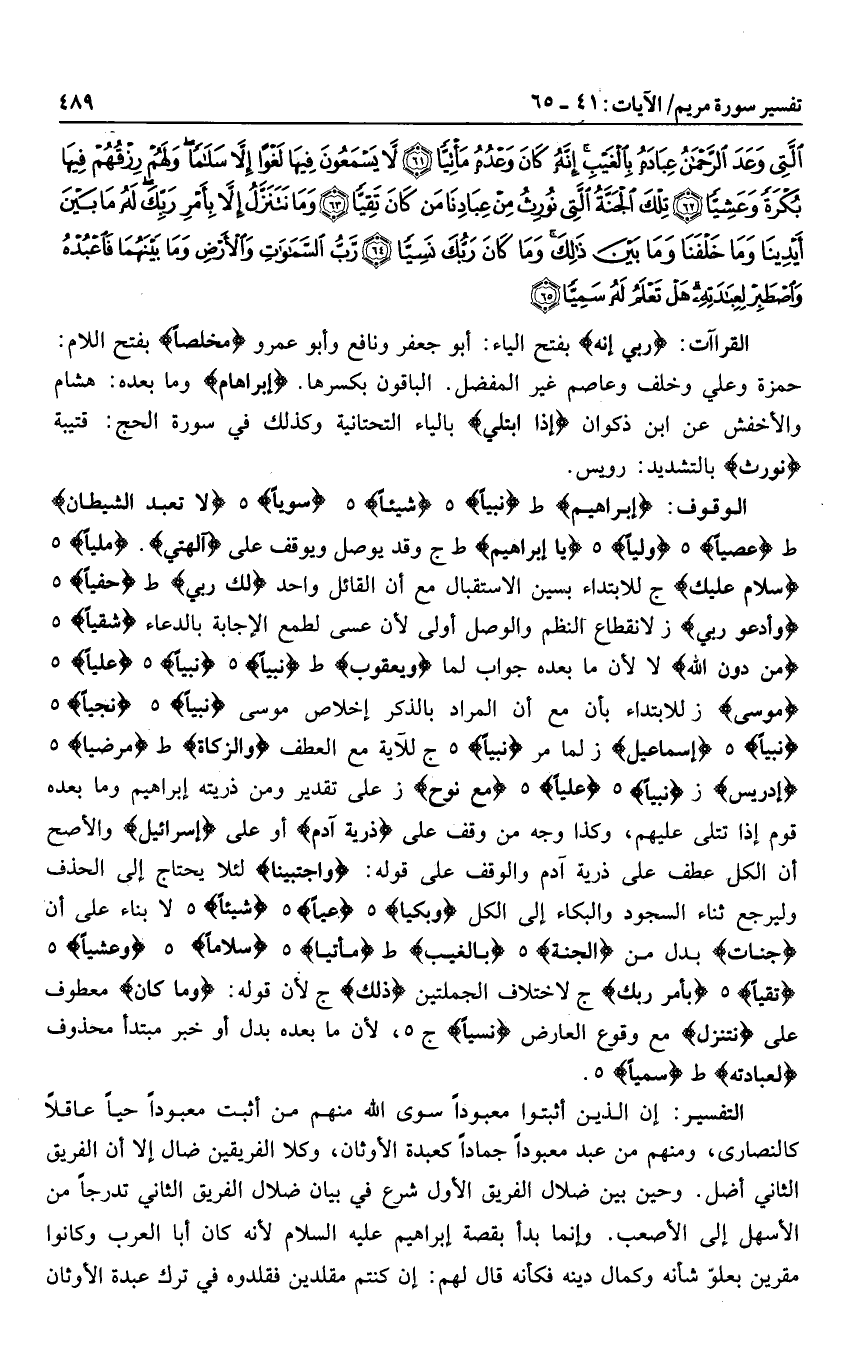 تفسير سورة مريم/ الآيات: ٤١ ـ ٦٥ ٤٨٩
الَّتِي وَعَدَ الرَّحْمَٰنُ عِبَادَهُ بِالْغَيْبِ ۚ إِنَّهُ كَانَ وَعْدُهُ مَأْتِيًّا ﴿٦١﴾ لَّا يَسْمَعُونَ فِيهَا لَغْوًا إِلَّا سَلَامًا ۖ وَلَهُمْ رِزْقُهُمْ فِيهَا
بُكْرَةً وَعَشِيًّا ﴿٦٢﴾ تِلْكَ الْجَنَّةُ الَّتِي نُورِثُ مِنْ عِبَادِنَا مَن كَانَ تَقِيًّا ﴿٦٣﴾ وَمَا نَتَنَزَّلُ إِلَّا بِأَمْرِ رَبِّكَ ۖ لَهُ مَا بَيْنَ
أَيْدِينَا وَمَا خَلْفَنَا وَمَا بَيْنَ ذَٰلِكَ ۚ وَمَا كَانَ رَبُّكَ نَسِيًّا ﴿٦٤﴾ رَّبُّ السَّمَاوَاتِ وَالْأَرْضِ وَمَا بَيْنَهُمَا فَاعْبُدْهُ
وَاصْطَبِرْ لِعِبَادَتِهِ ۚ هَلْ تَعْلَمُ لَهُ سَمِيًّا ﴿٦٥﴾
القراآت: ﴿ربي إنه﴾ بفتح الياء: أبو جعفر ونافع وأبو عمرو ﴿مخلصاً﴾ بفتح اللام:
حمزة وعلي وخلف وعاصم غير المفضل. الباقون بكسرها. ﴿إبراهام﴾ وما بعده: هشام
والأخفش عن ابن ذكوان ﴿إذا ابتلي﴾ بالياء التحتانية وكذلك في سورة الحج: قتيبة
﴿نورث﴾ بالتشديد: رويس.
الوقوف: ﴿إبراهيم﴾ ط ﴿نبياً﴾ ٥ ﴿شيئاً﴾ ٥ ﴿سوياً﴾ ٥ ﴿لا تعبد الشيطان﴾
ط ﴿عصياً﴾ ٥ ﴿ولياً﴾ ٥ ﴿يا إبراهيم﴾ ط ج وقد يوصل ويوقف على ﴿آلهتي﴾. ﴿ملياً﴾ ٥
﴿سلام عليك﴾ ج للابتداء بسين الاستقبال مع أن القائل واحد ﴿لك ربي﴾ ط ﴿حفياً﴾ ٥
﴿وأدعو ربي﴾ ز لانقطاع النظم والوصل أولى لأن عسى لطمع الإجابة بالدعاء ﴿شقياً﴾ ٥
﴿من دون الله﴾ لا لأن ما بعده جواب لما ﴿ويعقوب﴾ ط ﴿نبياً﴾ ٥ ﴿نبياً﴾ ٥ ﴿علياً﴾ ٥
﴿موسى﴾ ز للابتداء بأن مع أن المراد بالذكر إخلاص موسى ﴿نبياً﴾ ٥ ﴿نجياً﴾ ٥
﴿نبياً﴾ ٥ ﴿إسماعيل﴾ ز لما مر ﴿نبياً﴾ ٥ ج للآية مع العطف ﴿والزكاة﴾ ط ﴿مرضيا﴾ ٥
﴿إدريس﴾ ز ﴿نبياً﴾ ٥ ﴿علياً﴾ ٥ ﴿مع نوح﴾ ز على تقدير ومن ذريته إبراهيم وما بعده
قوم إذا تتلى عليهم، وكذا وجه من وقف على ﴿ذرية آدم﴾ أو على ﴿إسرائيل﴾ والأصح
أن الكل عطف على ذرية آدم والوقف على قوله: ﴿واجتبينا﴾ لئلا يحتاج إلى الحذف
وليرجع ثناء السجود والبكاء إلى الكل ﴿وبكيا﴾ ٥ ﴿غياً﴾ ٥ ﴿شيئاً﴾ ٥ لا بناء على أن
﴿جنات﴾ بدل من ﴿الجنة﴾ ٥ ﴿بالغيب﴾ ط ﴿مأتيا﴾ ٥ ﴿سلاماً﴾ ٥ ﴿وعشياً﴾ ٥
﴿تقياً﴾ ٥ ﴿بأمر ربك﴾ ج لاختلاف الجملتين ﴿ذلك﴾ ج لأن قوله: ﴿وما كان﴾ معطوف
على ﴿نتنزل﴾ مع وقوع العارض ﴿نسياً﴾ ج ٥، لأن ما بعده بدل أو خبر مبتدأ محذوف
﴿لعبادته﴾ ط ﴿سمياً﴾ ٥.
التفسير: إن الذين أثبتوا معبوداً سوى الله منهم من أثبت معبوداً حياً عاقلاً
كالنصارى، ومنهم من عبد معبوداً جماداً كعبدة الأوثان، وكلا الفريقين ضال إلا أن الفريق
الثاني أضل. وحين بين ضلال الفريق الأول شرع في بيان ضلال الفريق الثاني تدرجاً من
الأسهل إلى الأصعب. وإنما بدأ بقصة إبراهيم عليه السلام لأنه كان أبا العرب وكانوا
مقرين بعلوّ شأنه وكمال دينه فكأنه قال لهم: إن كنتم مقلدين فقلدوه في ترك عبدة الأوثان